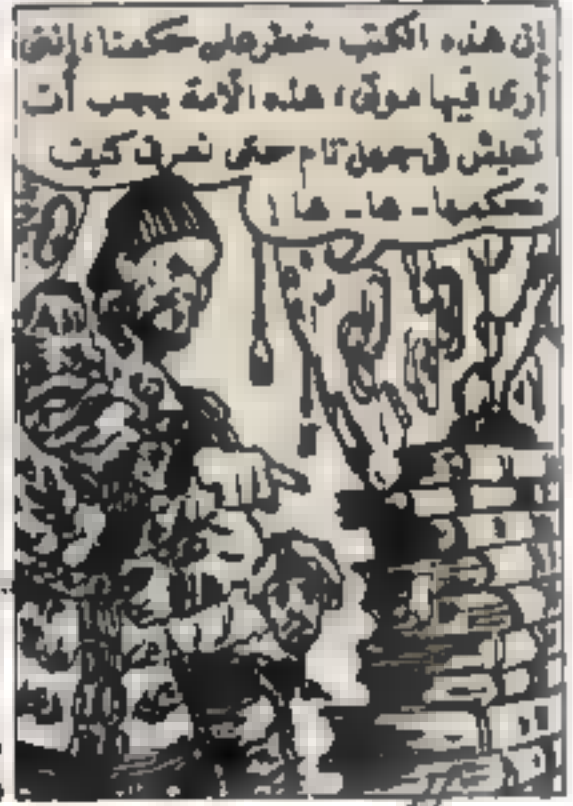 ان هذه الكتب خطر على حكمنا، إنني
أرى فيها موتي، هذه الأمة يجب أن
تعيش في جهل تام حتى نعرف كيف
نحكمها - ها - ها !